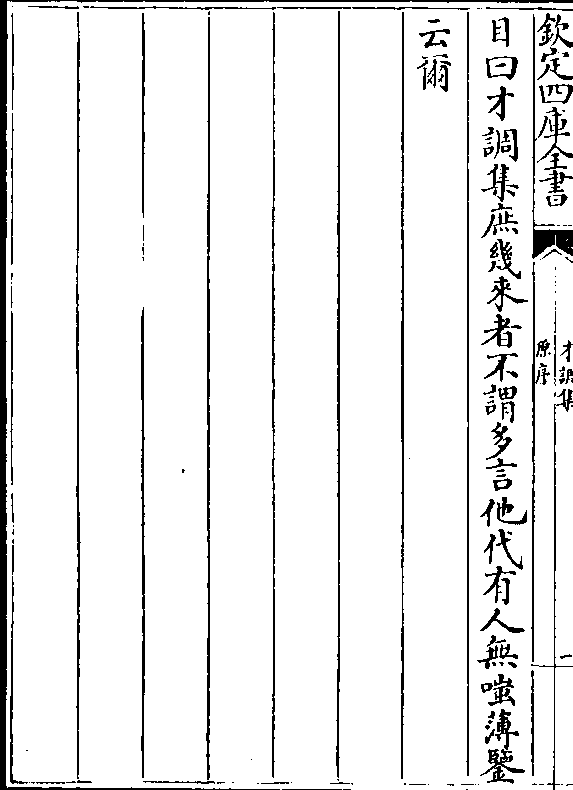 欽定四庫全書
才調集
原序
一
目曰才調集庶幾來者不謂多言他代有人無嗤薄鑒
云爾